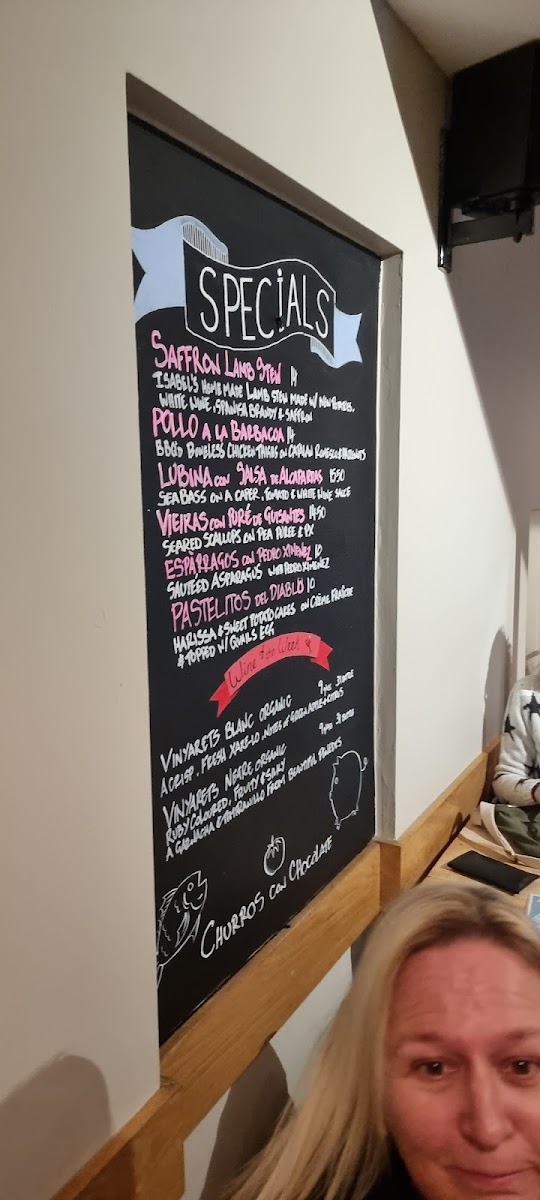 SPECIALS
SAFFRON LAMB STEW 14
ISABEL'S HOME MADE LAMB STEW MADE W/ NEW POTATOES,
WHITE WINE, SPANISH BRANDY & SAFFRON
POLLO A LA BARBACOA 14
BBQD BONELESS CHICKEN THIGHS ON CATALAN ROMESCO & HAZELNUTS
LUBINA CON SALSA DE ALCAPARRAS 15.50
SEA BASS ON A CAPER, TOMATO & WHITE WINE SAUCE
VIEIRAS CON PURÉ DE GUISANTES 14.50
SEARED SCALLOPS ON PEA PUREE & PX
ESPARRAGOS CON PEDRO XIMENEZ 10
SAUTEED ASPARAGUS WITH PEDRO XIMENEZ
PASTELITOS DEL DIABLO 10
HARISSA & SWEET POTATO CAKES ON CRÈME FRAÎCHE
& TOPPED W/ QUAILS EGG
Wine of the Week
VINYARETS BLANC ORGANIC
A CRISP, FRESH XAREL·LO, NOTES OF GREEN APPLE & CITRUS
VINYARETS NEGRE ORGANIC
RUBY COLOURED, FRUITY & SPICY
A GARNACHA & TEMPRANILLO FROM BEAUTIFUL PENEDES
CHURROS CON CHOCOLATE